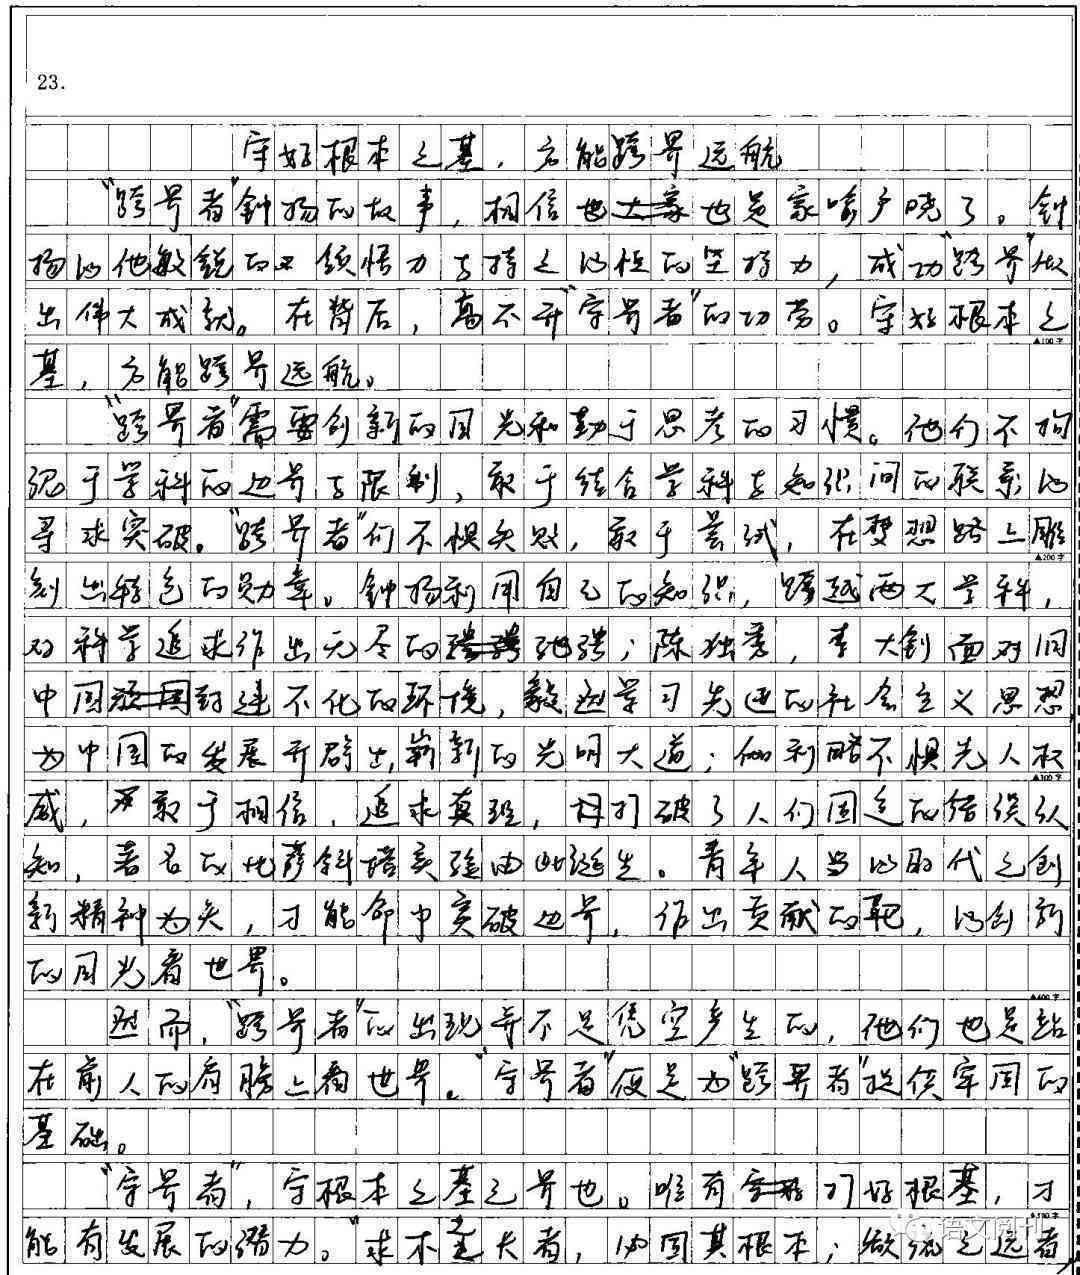 23.
守好根本之基，方能跨界远航
“跨界者”钟扬的故事，相信也是家喻户晓了。钟
扬以他敏锐的领悟力与持之以恒的坚持力，成功“跨界”做
出伟大成就。在背后，离不开“守界者”的功劳。守好根本之
▲100字
基，方能跨界远航。
“跨界者”需要创新的目光和勤于思考的习惯。他们不拘
泥于学科的边界与限制，敢于结合学科与知识间的联系以
寻求突破。“跨界者”们不惧失败，敢于尝试，在梦想路上雕
▲200字
刻出特色的勋章。钟扬利用自己的知识，跨越两大学科，
对科学追求作出无尽的弛骋；陈独秀，李大钊面对旧
中国封建不化的环境，毅然学习先进的社会主义思想，
为中国的发展开辟出崭新的光明大道；伽利略不惧先人权
▲300字
威，敢于相信，追求真理，打破了人们固定的错误认
知，著名的比萨斜塔实验由此诞生。青年人当以时代之创
新精神为矢，才能命中突破边界，作出贡献的靶，以创新
的目光看世界。
▲400字
然而，“跨界者”的出现并不是凭空产生的，他们也是站
在前人的肩膀上看世界。“守界者”便是为“跨界者”提供牢固的
基础。
“守界者”，守根本之基之界也。唯有打好根基，才
▲500字
能有发展的潜力。“求木之长者，必固其根本；欲流之远者
语文阅刊